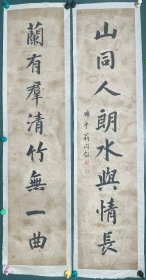 山同人朗水與情長
蘭有羣清竹無一曲